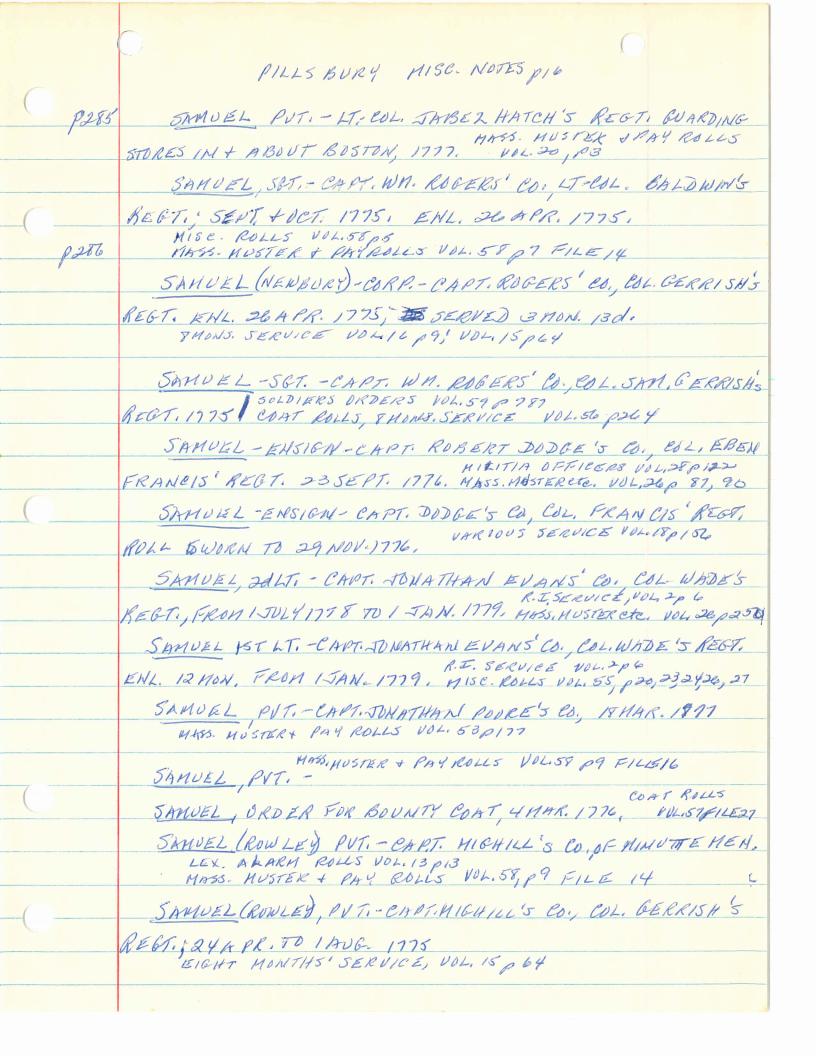 PILLSBURY MISC. NOTES p16
p285 SAMUEL PVT. - LT.-COL. JABEZ HATCH'S REGT. GUARDING
MASS. MUSTER & PAY ROLLS
STORES IN & ABOUT BOSTON, 1777. VOL. 20, p3
SAMUEL, SGT. - CAPT. WM. ROGERS' CO., LT-COL. BALDWIN'S
REGT.; SEPT. & OCT. 1775. ENL. 26 APR. 1775.
MISC. ROLLS VOL. 58 p5
p286 MASS. MUSTER & PAY ROLLS VOL. 58 p7 FILE 14
SAMUEL (NEWBURY) - CORP. - CAPT. ROGERS' CO., COL. GERRISH'S
REGT. ENL. 26 APR. 1775; SERVED 3 MON. 13d.
8 MONS. SERVICE VOL. 16 p9; VOL. 15 p64
SAMUEL - SGT. - CAPT. WM. ROGERS' CO., COL. SAM. GERRISH'S
SOLDIERS ORDERS VOL. 59 p787
REGT. 1775 / COAT ROLLS, 8 MONS. SERVICE VOL. 56 p264
SAMUEL - ENSIGN - CAPT. ROBERT DODGE'S CO., COL. EBEN
MILITIA OFFICERS VOL. 28 p122
FRANCIS' REGT. 23 SEPT. 1776. MASS. MUSTER etc. VOL. 26 p 87, 90
SAMUEL - ENSIGN - CAPT. DODGE'S CO, COL. FRANCIS' REGT.
VARIOUS SERVICE VOL. 18 p156
ROLL SWORN TO 29 NOV. 1776.
SAMUEL, 2d LT. - CAPT. JONATHAN EVANS' CO. COL WADE'S
R.I. SERVICE, VOL. 2 p 6
REGT., FROM 1 JULY 1778 TO 1 JAN. 1779. MASS. MUSTER etc. VOL. 26, p
SAMUEL 1ST LT. - CAPT. JONATHAN EVANS' CO., COL. WADE'S REGT.
R.I. SERVICE VOL. 2 p6
ENL. 12 MON. FROM 1 JAN. 1779. MISC. ROLLS VOL. 55, p20, 23, 24, 26, 27
SAMUEL, PVT. - CAPT. JONATHAN POORE'S CO., 18 MAR. 1777
MASS. MUSTER & PAY ROLLS VOL. 53 p177
MASS. MUSTER & PAY ROLLS VOL. 58 p9 FILE 16
SAMUEL, PVT. -
COAT ROLLS
SAMUEL, ORDER FOR BOUNTY COAT, 4 MAR. 1776, VOL. 57 FILE 27
SAMUEL (ROWLEY) PVT. - CAPT. MIGHILL'S CO. OF MINUTE MEN.
LEX. ALARM ROLLS VOL. 13 p13
MASS. MUSTER & PAY ROLLS VOL. 58, p9 FILE 14
SAMUEL (ROWLEY), PVT. - CAPT. MIGHILL'S CO., COL. GERRISH'S
REGT.; 24 APR. TO 1 AUG. 1775
EIGHT MONTHS' SERVICE, VOL. 15 p 64